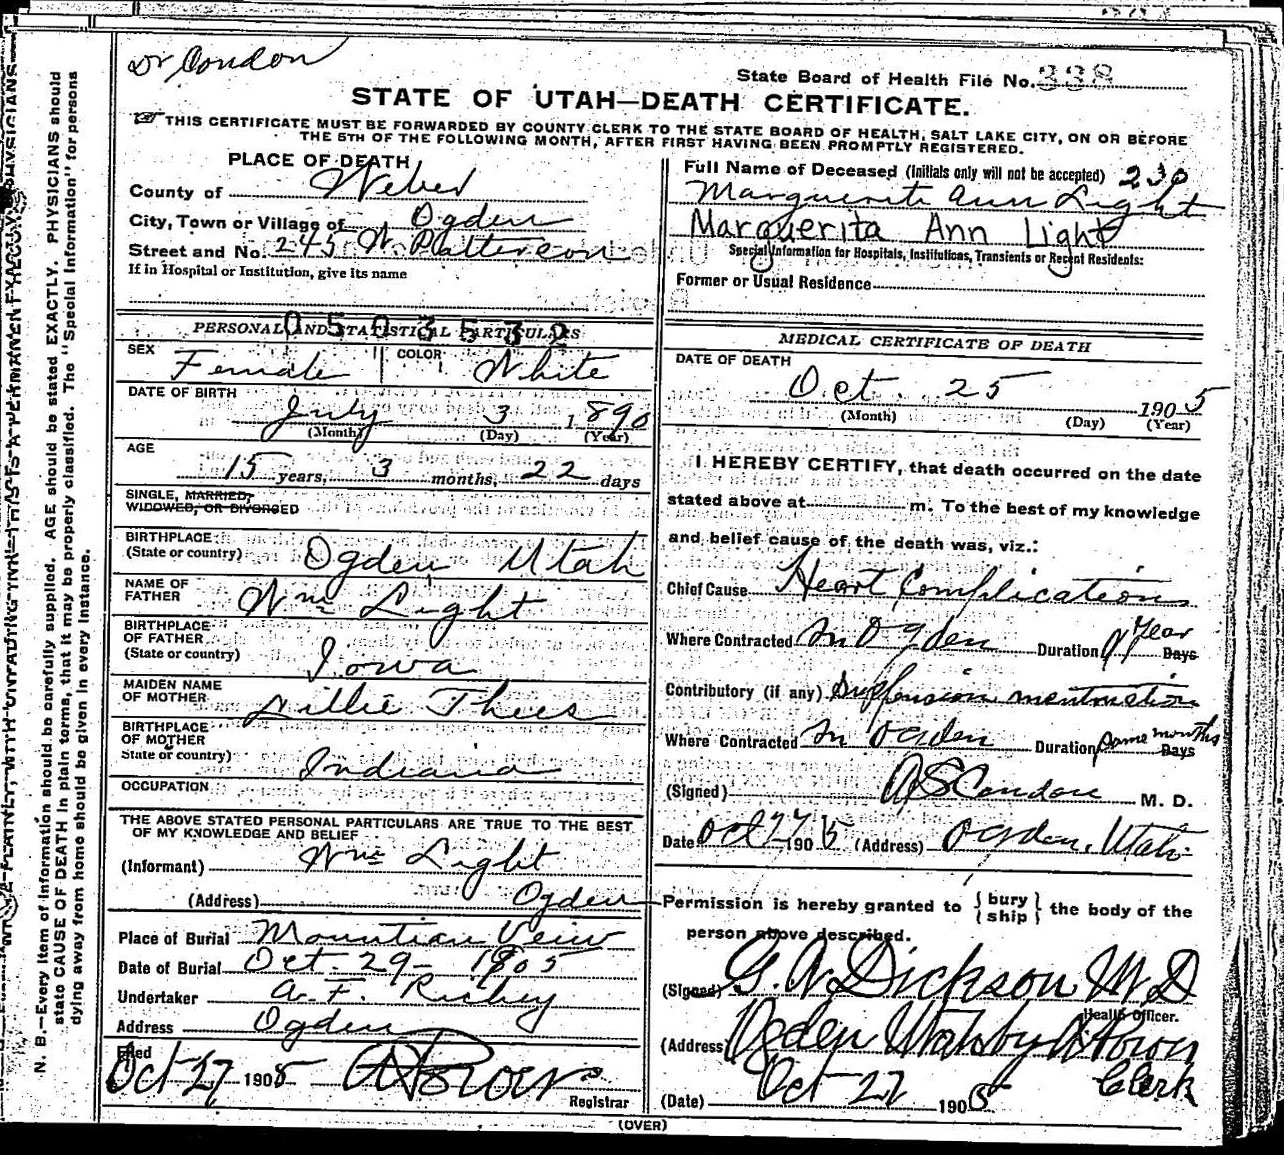 Dr Condon
State Board of Health File No. 338
STATE OF UTAH—DEATH CERTIFICATE.
THIS CERTIFICATE MUST BE FORWARDED BY COUNTY CLERK TO THE STATE BOARD OF HEALTH, SALT LAKE CITY, ON OR BEFORE
THE 5TH OF THE FOLLOWING MONTH, AFTER FIRST HAVING BEEN PROMPTLY REGISTERED.
PLACE OF DEATH
County of Weber
City, Town or Village of Ogden
Street and No. 245 N. Patterson
If in Hospital or Institution, give its name
0503532
PERSONAL AND STATISTICAL PARTICULARS
SEX Female COLOR White
DATE OF BIRTH
July 3 1890
(Month) (Day) (Year)
AGE
15 years, 3 months, 22 days
SINGLE, MARRIED,
WIDOWED, OR DIVORCED
BIRTHPLACE
(State or country) Ogden Utah
NAME OF
FATHER Wm Light
BIRTHPLACE
OF FATHER
(State or country) Iowa
MAIDEN NAME
OF MOTHER Lillie Thees
BIRTHPLACE
OF MOTHER
State or country) Indiana
OCCUPATION
THE ABOVE STATED PERSONAL PARTICULARS ARE TRUE TO THE BEST
OF MY KNOWLEDGE AND BELIEF
(Informant) Wm Light
(Address) Ogden
Place of Burial Mountian Veiw
Date of Burial Oct. 29- 1905
Undertaker A. F. Richey
Address Ogden
Filed
Oct 27 1905
Registrar
Full Name of Deceased (Initials only will not be accepted) 230
Marguerite Ann Light
Marguerita Ann Light
Special Information for Hospitals, Institutions, Transients or Recent Residents:
Former or Usual Residence
MEDICAL CERTIFICATE OF DEATH
DATE OF DEATH
Oct. 25 1905
(Month) (Day) (Year)
I HEREBY CERTIFY, that death occurred on the date
stated above at m. To the best of my knowledge
and belief cause of the death was, viz.:
Chief Cause Heart Complications
Where Contracted In Ogden Duration 1 Year Days
Contributory (if any) Suppension mentruation
Where Contracted In Ogden Duration some months Days
(Signed) A S Condon M. D.
Date Oct 27 1905 (Address) Ogden, Utah-
Permission is hereby granted to { bury ship } the body of the
person above described.
(Signed) G. W. Dickson M D
Health Officer.
(Address) Ogden Utah by
Clerk
(Date) Oct 27 1905
(OVER)
N. B.—Every item of information should be carefully supplied. AGE should be stated EXACTLY. PHYSICIANS should
state CAUSE OF DEATH in plain terms, that it may be properly classified. The "Special Information" for persons
dying away from home should be given in every instance.